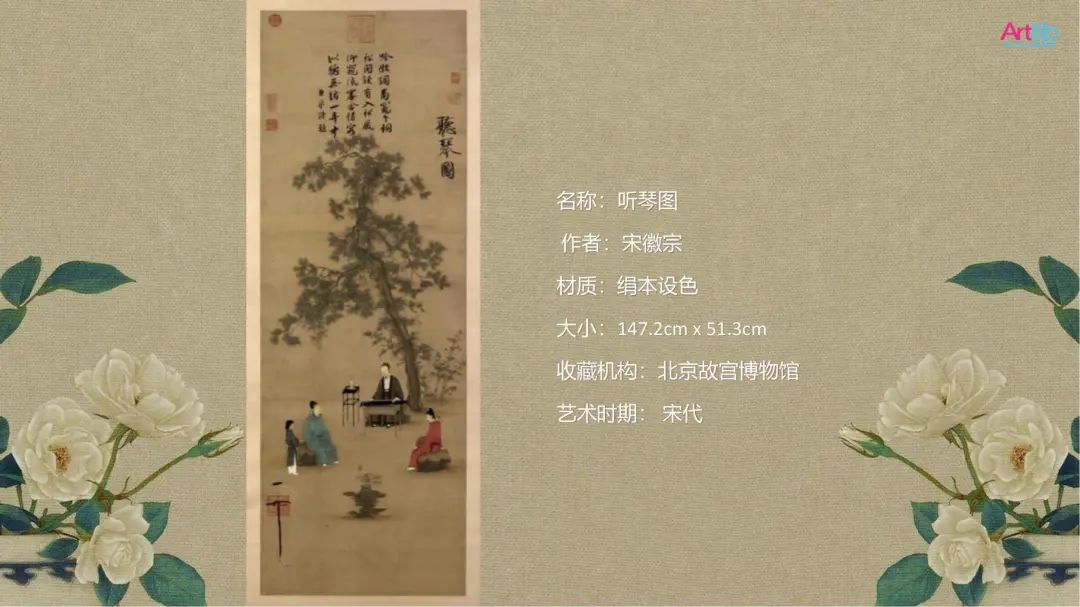 吟徵調商竈下桐
松間疑有入松風
仰窺低審含情客
似聽無絃一弄中
臣京謹題
聽琴圖
名称：听琴图
作者：宋徽宗
材质：绢本设色
大小：147.2cm x 51.3cm
收藏机构：北京故宫博物馆
艺术时期： 宋代